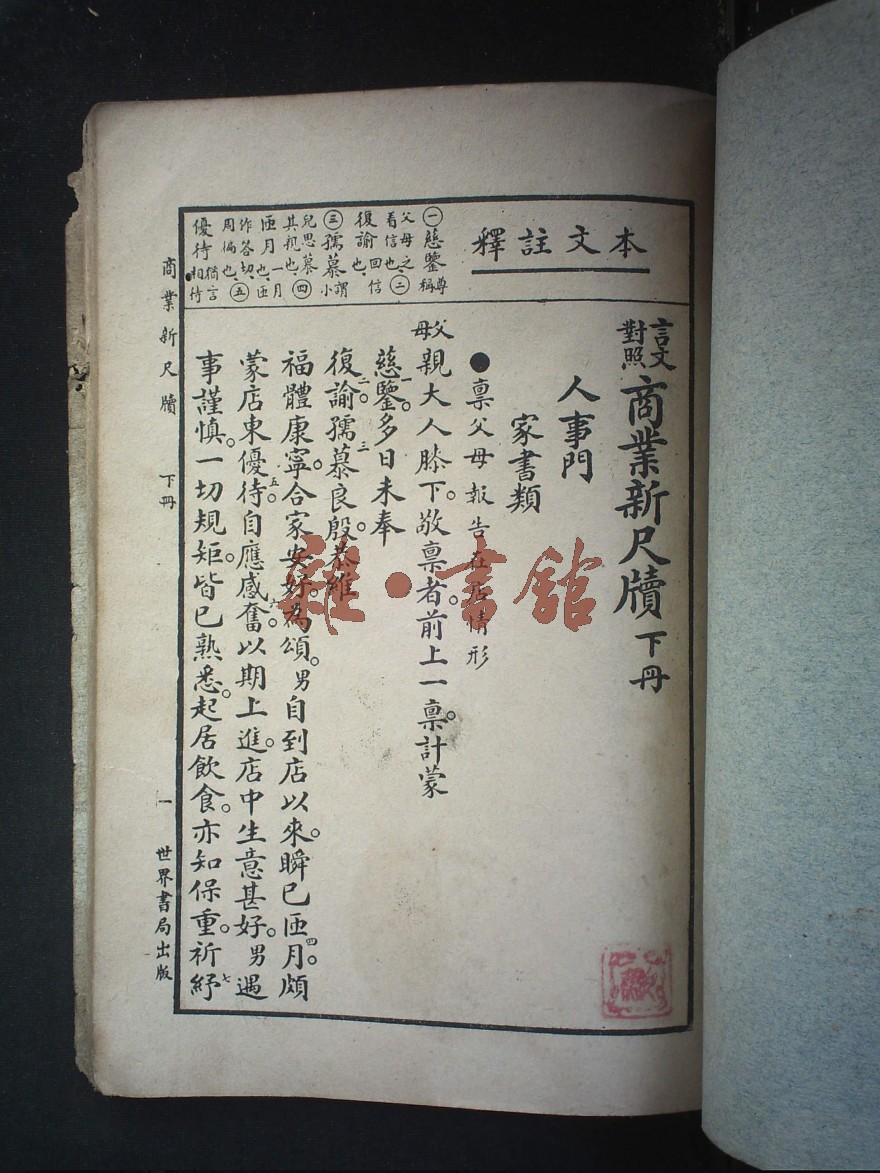 本文註釋
㊀慈鑒尊稱
父母之看信也㊁
復諭回信也
㊂孺慕謂小
兒思慕其親也㊃
匝月一月也匝
作答切周徧也㊄
優待猶言相待
言文對照 商業新尺牘 下冊
人事門
家書類
●稟父母報告在店情形
父母親大人膝下。敬稟者。前上一稟。計蒙
慈鑒。一多日未奉
復諭。二孺慕三良殷。恭維
福體康寧。合家安好。爲頌。男自到店以來。瞬已匝月。四頗
蒙店東優待。五自應感奮。六以期上進。店中生意甚好。男遇
事謹慎。一切規矩。皆已熟悉。起居飲食。亦知保重。祈紓七
商業新尺牘 下冊 一 世界書局出版
雜·書館